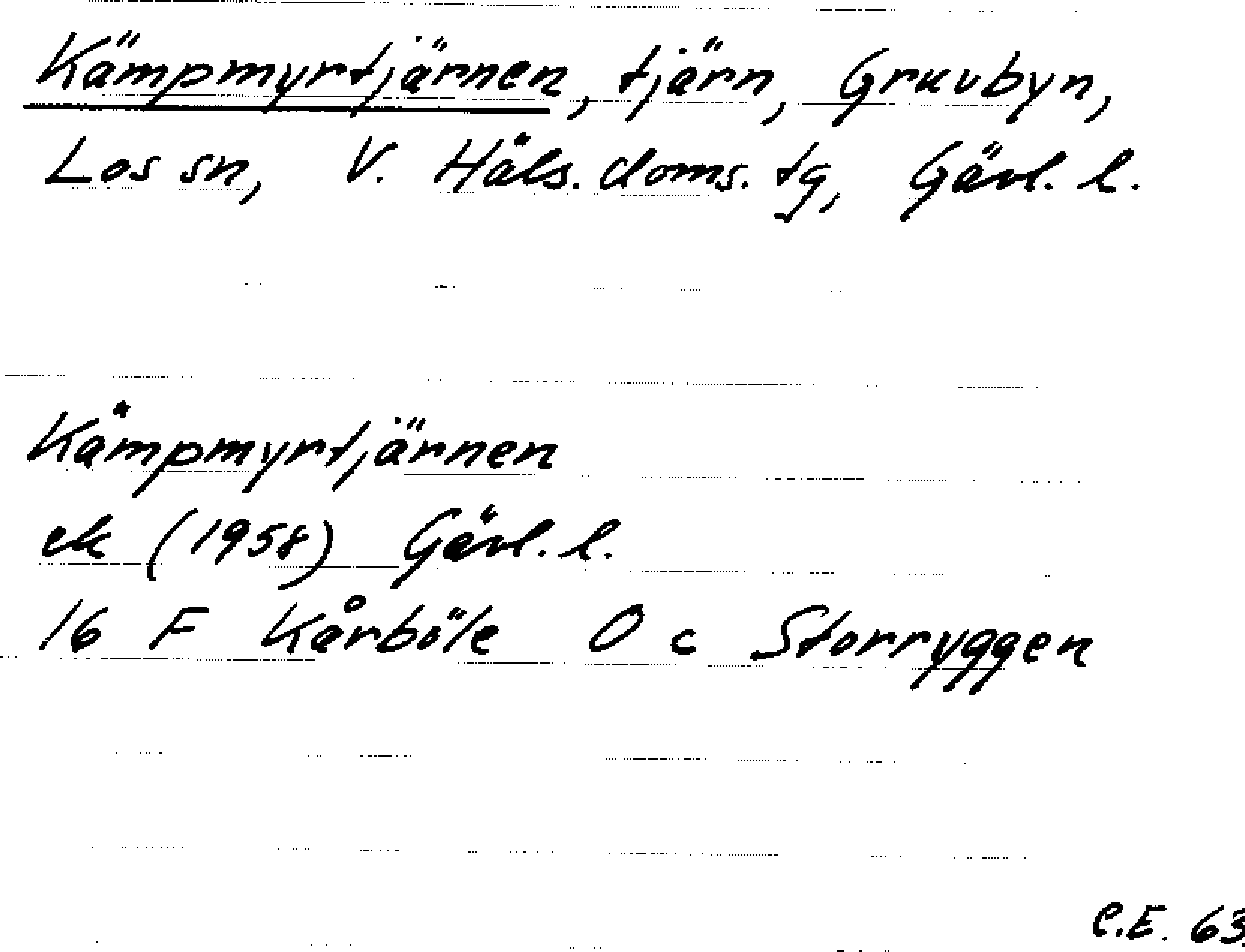 Kämpmyrtjärnen, tjärn, Gruvbyn,
Los sn, V. Häls. doms. tg, Gävl. l.
Kämpmyrtjärnen
ek (1958) Gävl. l.
16 F Kårböle 0 c Storryggen
C.E. 63